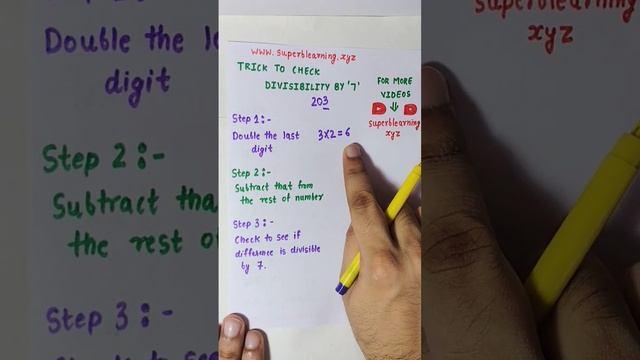 www.superblearning.xyz
TRICK TO CHECK
DIVISIBILITY BY '7'
203
FOR MORE
VIDEOS
superblearning
xyz
Step 1:-
Double the last
digit
3x2=6
Step 2:-
Subtract that from
the rest of number
Step 3:-
Check to see if
difference is divisible
by 7.
Double the la
digit
Step 2:-
Subtract tha
the rest of
Step 3:-
superblearning
xyz